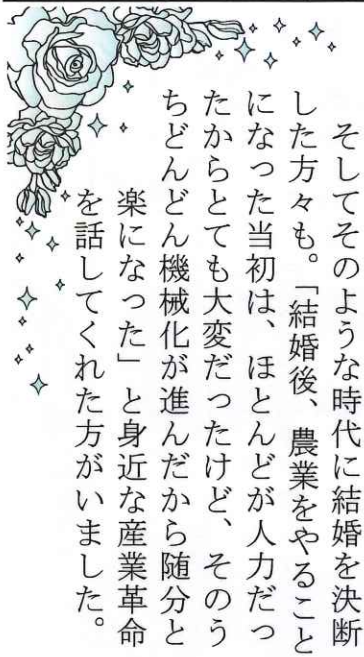 そしてそのような時代に結婚を決断
した方々も。「結婚後、農業をやること
になった当初は、ほとんどが人力だっ
たからとても大変だったけど、そのう
ちどんどん機械化が進んだから随分と
楽になった」と身近な産業革命
を話してくれた方がいました。